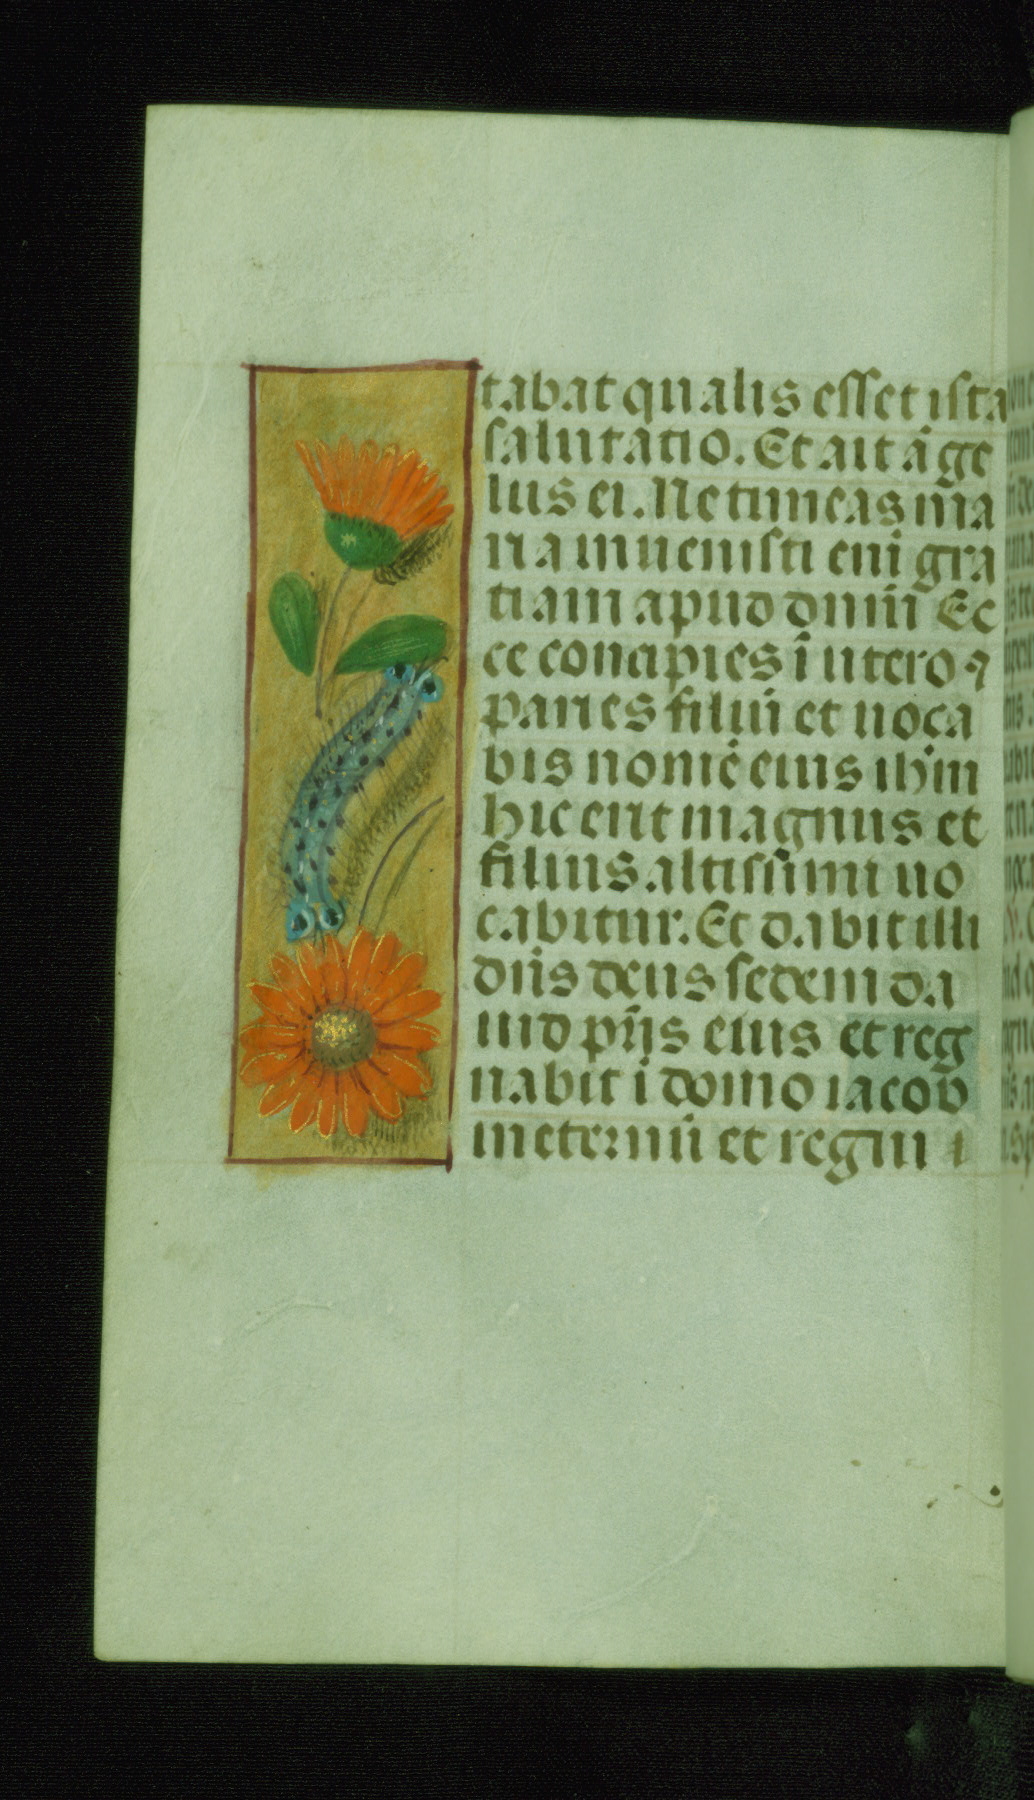 tabat qualis esset ista
salutatio. Et ait āge
lus ei. Ne timeas ma
ria inuenisti eni gra
tiam apud dnm̄ Ec
ce concipies ī utero ꝫ
paries filiū et uoca
bis nomē eius ihm̄
hic erit magnus et
filius altissimi uo
cabitur. Et dabit illi
dn̄s deus sedem da
uid pr̄is eius et reg
nabit ī domo iacob
in eternū et regni